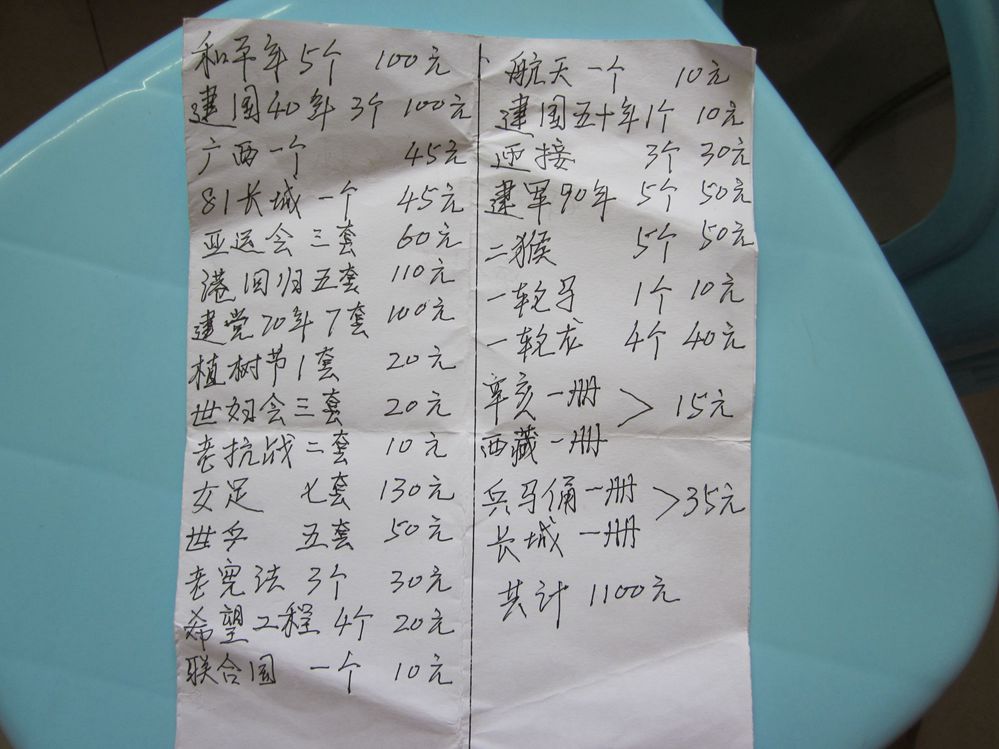 和平年5个 100元
建国40年3个100元
广西一个 45元
81长城一个 45元
亚运会三套 60元
港回归五套 110元
建党70年7套 100元
植树节1套 20元
世妇会三套 20元
老抗战二套 10元
女足 七套 130元
世乒 五套 50元
老宪法 3个 30元
希望工程4个 20元
联合国 一个 10元
航天一个 10元
建国五十年1个 10元
迎接 3个 30元
建军90年 5个 50元
二猴 5个 50元
一轮马 1个 10元
一轮龙 4个 40元
辛亥一册 > 15元
西藏一册
兵马俑一册 >35元
长城一册
共计 1100元